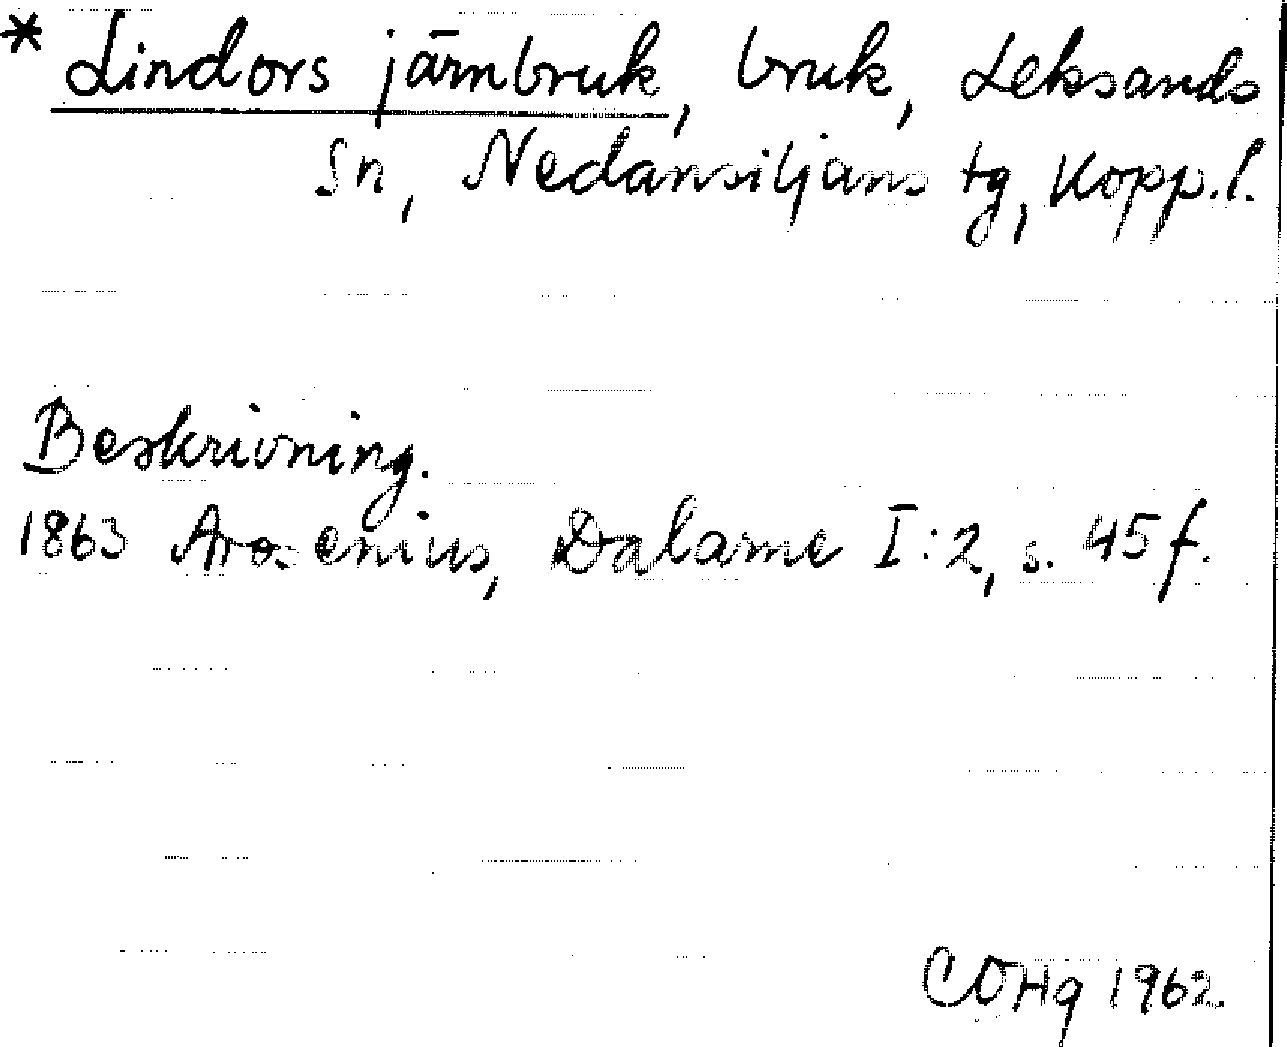 * Lindors järnbruk, bruk, Leksands
sn, Nedansiljans tg, Kopp. l.
Beskrivning.
1863 Arosenius, Dalarne I:2, s. 45 f.
COHg 1962.